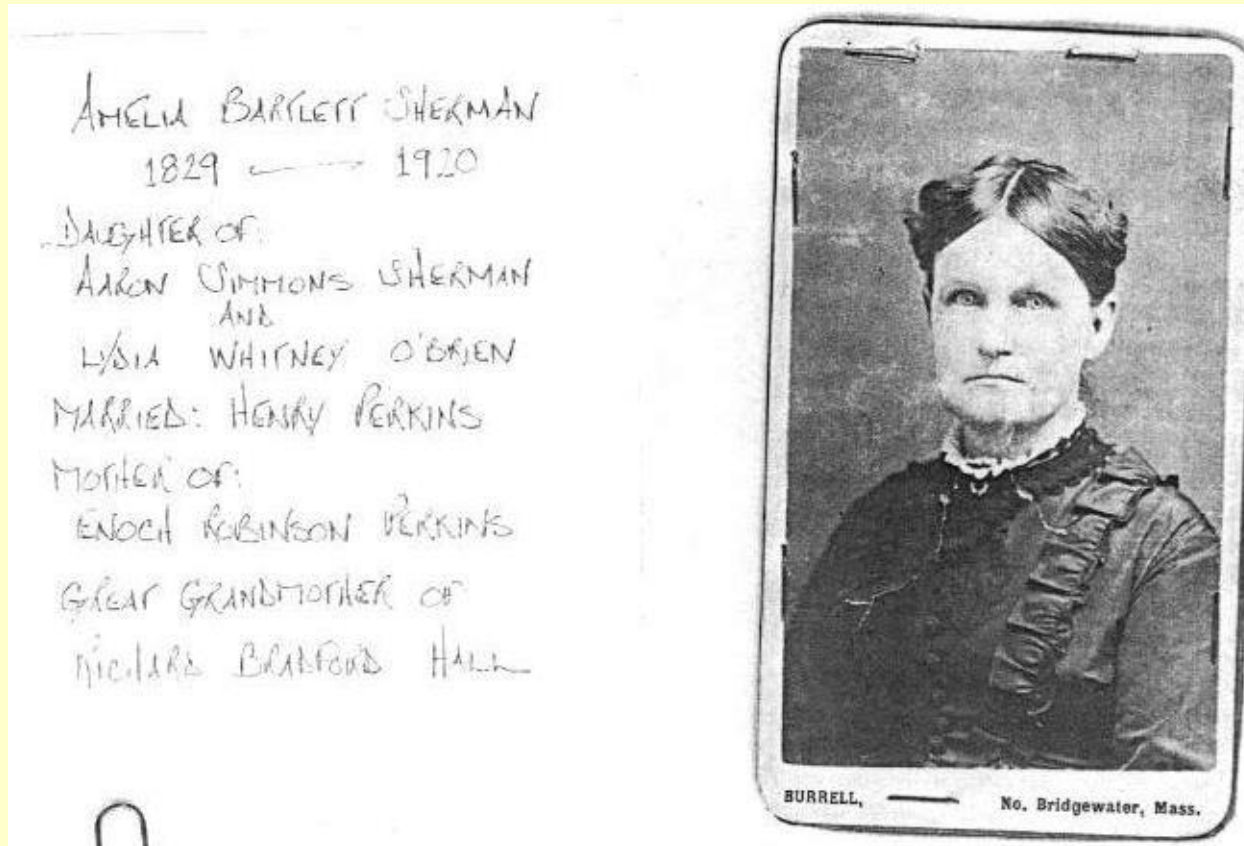 AMELIA BARTLETT SHERMAN
1829 — 1920
DAUGHTER OF:
AARON SIMMONS SHERMAN
AND
LYDIA WHITNEY O'BRIEN
MARRIED: HENRY PERKINS
MOTHER OF:
ENOCH ROBINSON PERKINS
GREAT GRANDMOTHER OF
RICHARD BRADFORD HALL
BURRELL, — No. Bridgewater, Mass.